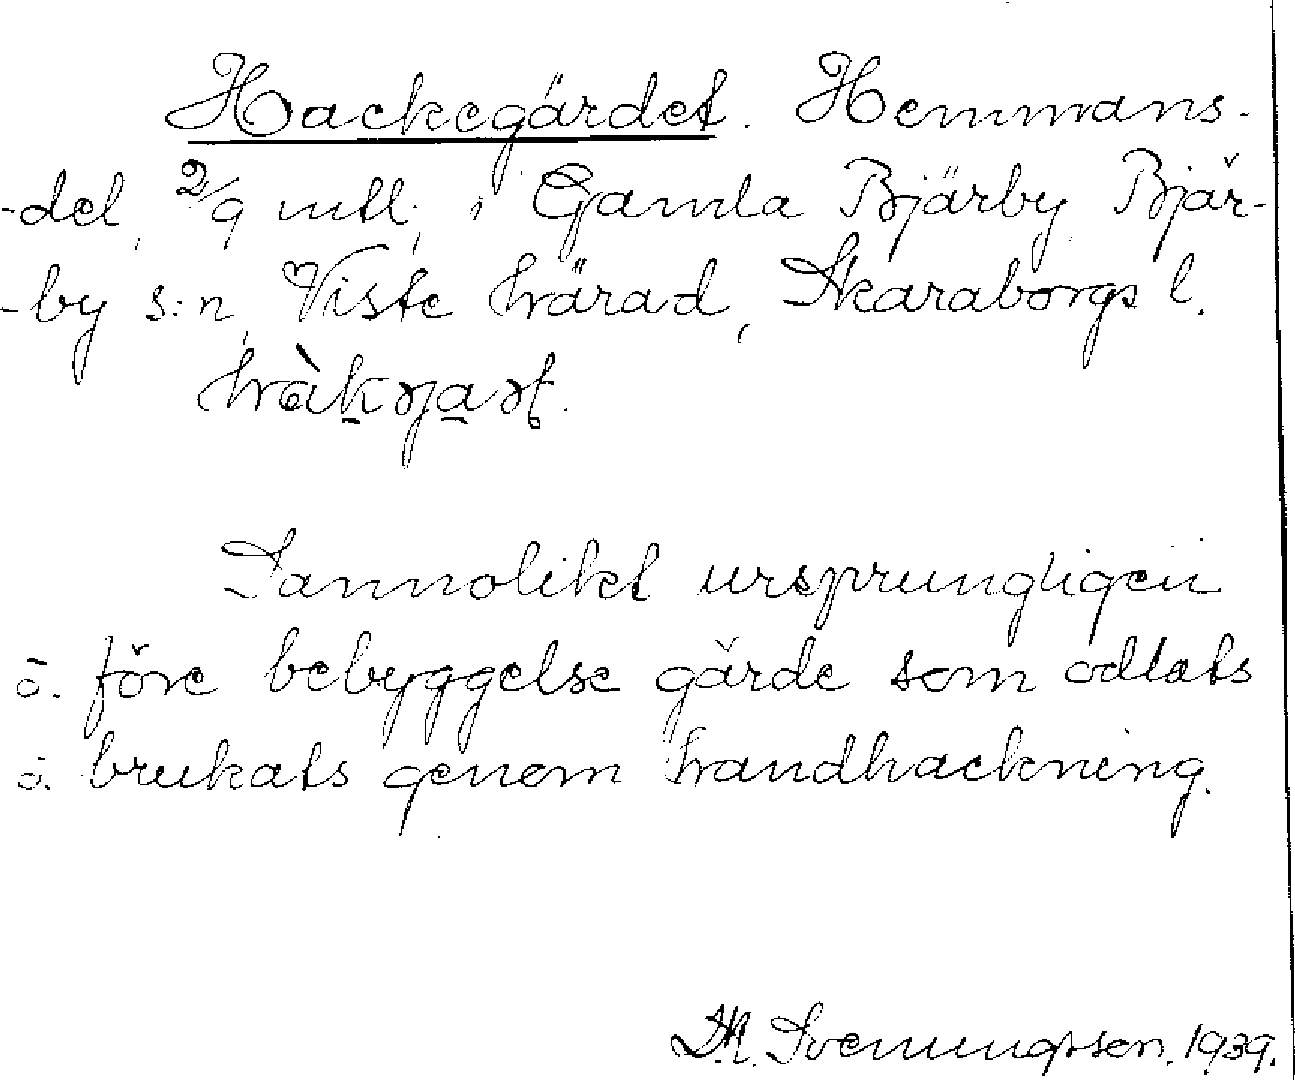 Hackegärdet. Hemmans-
-del, 2/9 mtl., i Gamla Bjärby, Bjär-
-by s:n, Viste härad, Skaraborgs l.
Sannolikt ursprungligen
o. före bebyggelse gärde som odlats
o. brukats genom handhackning.
Svenungsson. 1939.